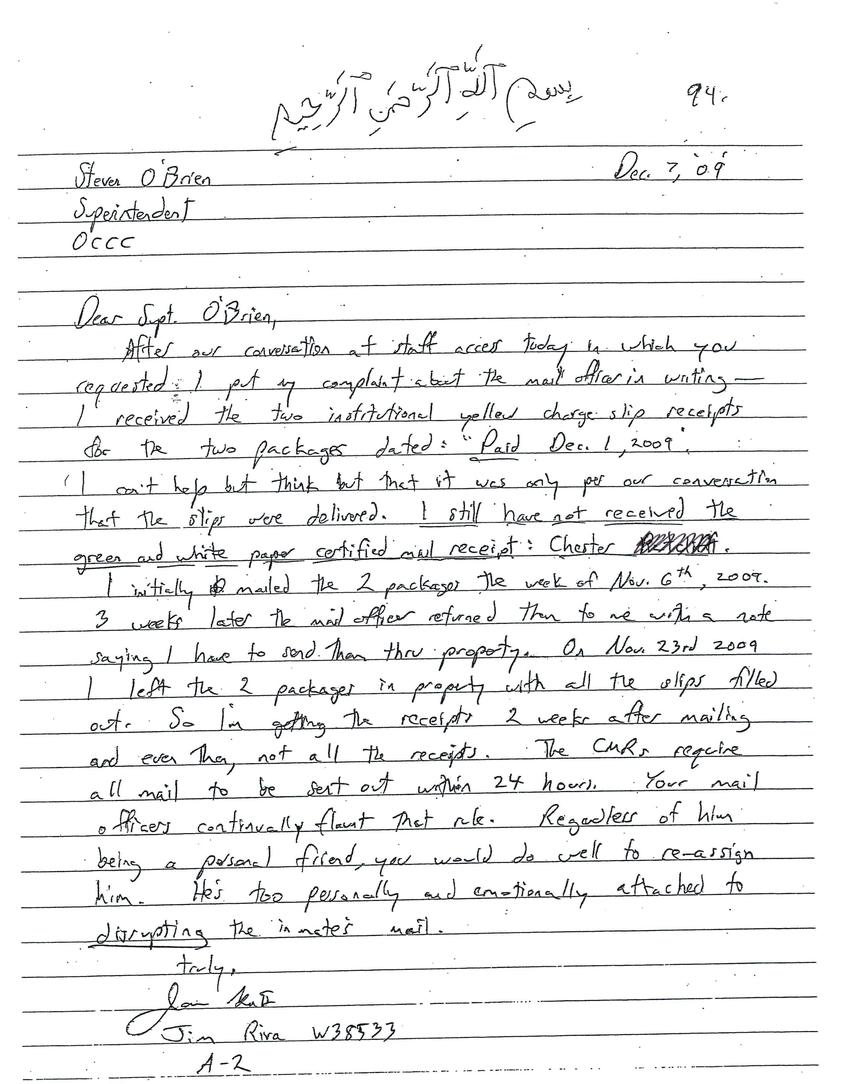 بِسْمِ ٱللَّهِ ٱلرَّحْمَٰنِ ٱلرَّحِيمِ
94.
Steven O'Brien
Dec. 7, '09
Superintendent
OCCC
Dear Supt. O'Brien,
After our conversation at staff access today in which you
requested: I put my complaint about the mail officer in writing —
I received the two institutional yellow charge slip receipts
for the two packages dated: "Paid Dec. 1, 2009".
I can't help but think but that it was only per our conversation
that the slips were delivered. I still have not received the
green and white paper certified mail receipt: Chester
I initially mailed the 2 packages the week of Nov. 6th, 2009.
3 weeks later the mail officer returned them to me with a note
saying I have to send them thru property. On Nov. 23rd 2009
I left the 2 packages in property with all the slips filled
out. So I'm getting the receipts 2 weeks after mailing
and even then, not all the receipts. The CMRs require
all mail to be sent out within 24 hours. Your mail
officers continually flaunt that rule. Regardless of him
being a personal friend, you would do well to re-assign
him. He's too personally and emotionally attached to
disrupting the inmate's mail.
truly,
Jim Riva W38533
A-2